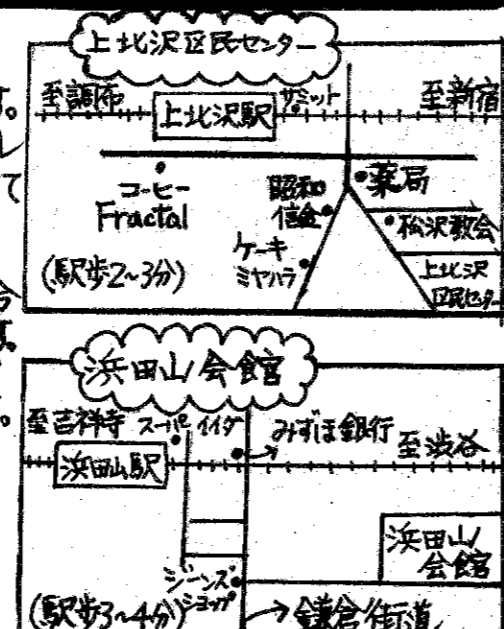 上北沢区民センター
至調布
上北沢駅
サミット
至新宿
コーヒー
Fractal
昭和
信金
薬局
松沢教会
ケーキ
ミヤハラ
上北沢
区民センター
(駅歩2~3分)
浜田山会館
至吉祥寺
スーパー
イイダ
みずほ銀行
至渋谷
浜田山駅
浜田山
会館
ジーンズ
ショップ
(駅歩3~4分)
鎌倉街道
す。
て
す。